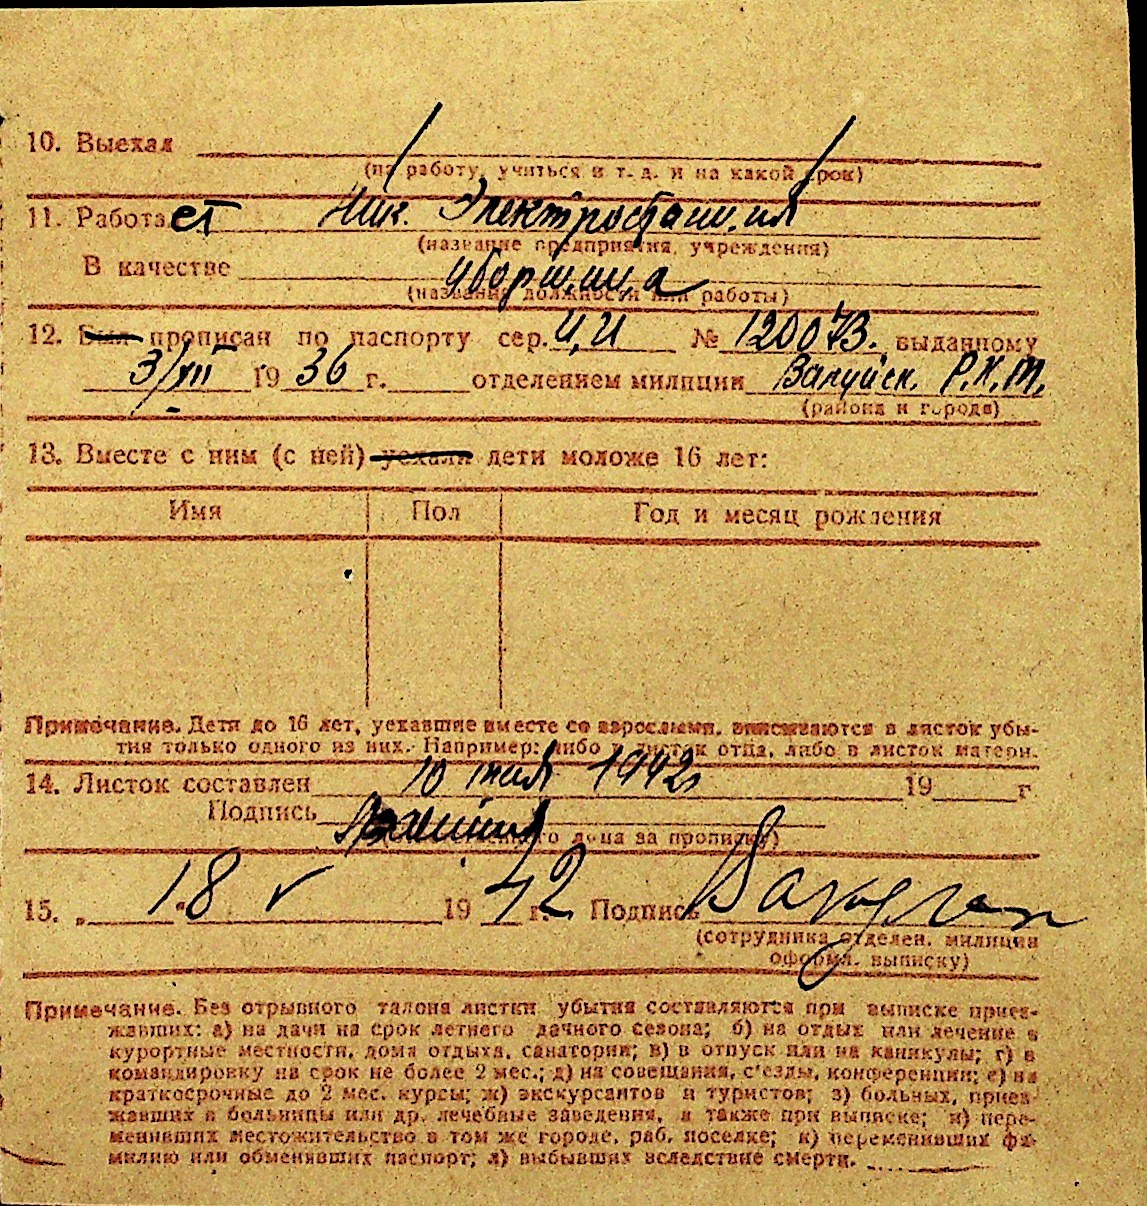 10. Выехал
(на работу, учиться и т. д. и на какой срок)
11. Работает Ник. Электростанция
(название предприятия, учреждения)
В качестве уборщица
(название должности или работы)
12. Был прописан по паспорту сер. ЦИ № 120073. выданному
3/VIII 1936 г. отделением милиции Валуйск. Р.К.М.
(района и города)
13. Вместе с ним (с ней) уехали дети моложе 16 лет:
Имя Пол Год и месяц рождения
Примечание. Дети до 16 лет, уехавшие вместе со взрослыми, вписываются в листок убы-
тия только одного из них. Например: либо в листок отца, либо в листок матери.
14. Листок составлен 10 мая 1942 19 г
Подпись
дома за прописку)
15. „ 18 " V 1942 г. Подпись
(сотрудника отделен. милиции
оформл. выписку)
Примечание. Без отрывного талона листки убытия составляются при выписке приез-
жавших: а) на дачи на срок летнего дачного сезона; б) на отдых или лечение в
курортные местности, дома отдыха, санатории; в) в отпуск или на каникулы; г) в
командировку на срок не более 2 мес.; д) на совещания, с'езды, конференции; е) на
краткосрочные до 2 мес. курсы; ж) экскурсантов и туристов; з) больных, приез-
жавших в больницы или др. лечебные заведения, а также при выписке; и) пере-
менивших местожительство в том же городе, раб. поселке; к) переменивших фа-
милию или обменявших паспорт; л) выбывших вследствие смерти.